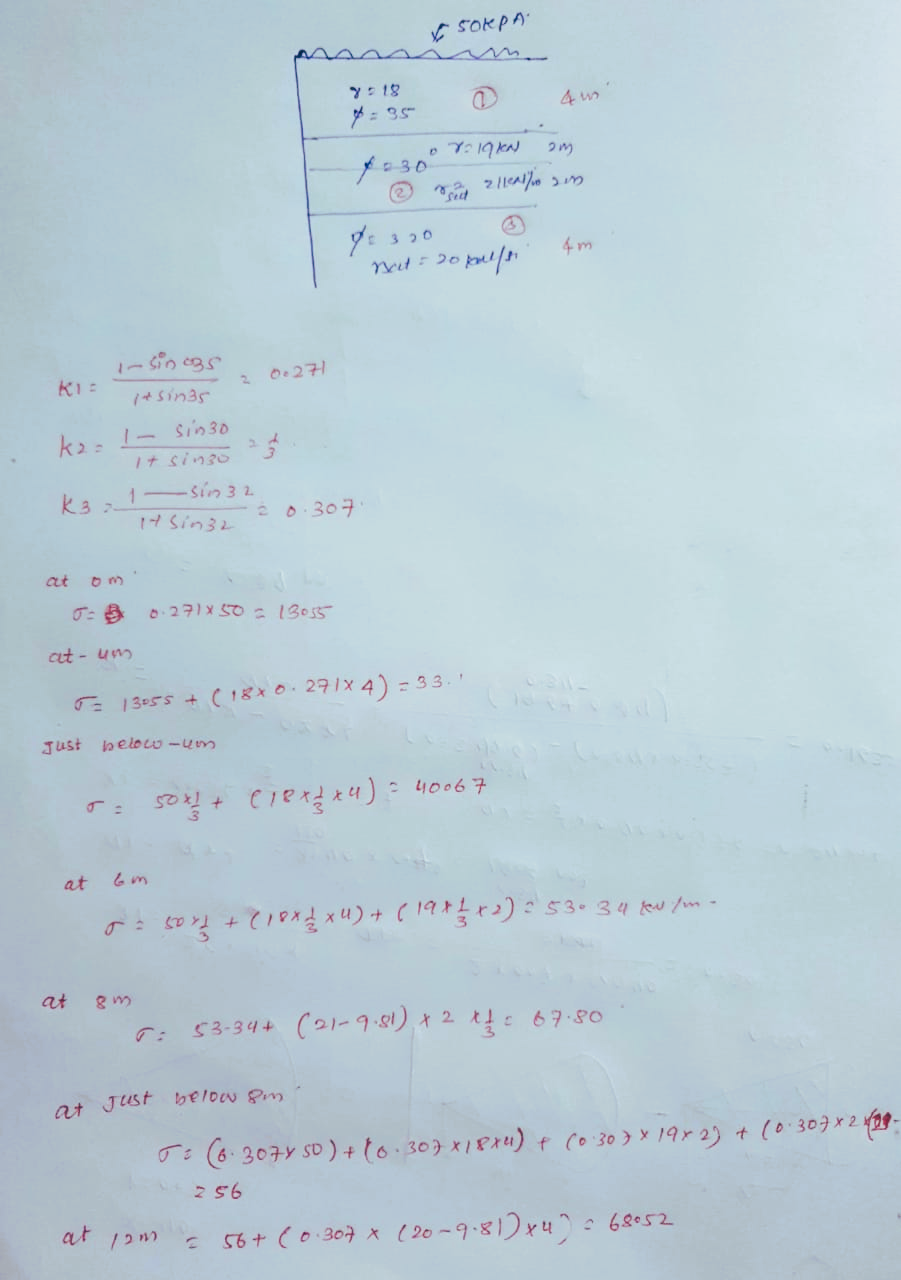 50KPA
γ = 18
φ = 35
① 4m
φ = 30° γ = 19KN 2m
② γsat = 21KN/m 2m
φ = 320 ③
γsat = 20 4m
K1 = 1 - sin 35 / 1 + sin35 = 0.271
K2 = 1 - sin30 / 1 + sin30 = 1/3
K3 = 1 - sin32 / 1 + sin32 = 0.307
at 0m
σ = 0.271 x 50 = 13.55
at - 4m
σ = 13.55 + (18 x 0.271 x 4) = 33.1
Just below - 4m
σ = 50 x 1/3 + (18 x 1/3 x 4) = 40.67
at 6m
σ = 50 x 1/3 + (18 x 1/3 x 4) + (19 x 1/3 x 2) = 53.34 KN/m
at 8m
σ = 53.34 + (21 - 9.81) x 2 x 1/3 = 67.80
at Just below 8m
σ = (0.307 x 50) + (0.307 x 18 x 4) + (0.307 x 19 x 2) + (0.307 x 2 x
= 56
at 12m = 56 + (0.307 x (20 - 9.81) x 4) = 68.52